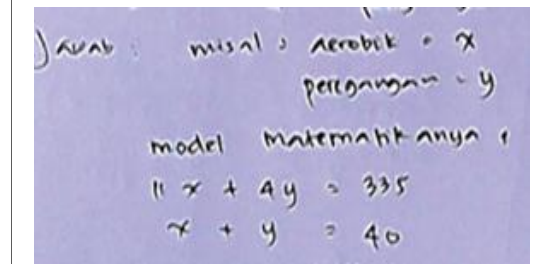 Jawab : misal : Aerobik = x
peregangan = y
model matematikanya :
11 x + 4y = 335
x + y = 40